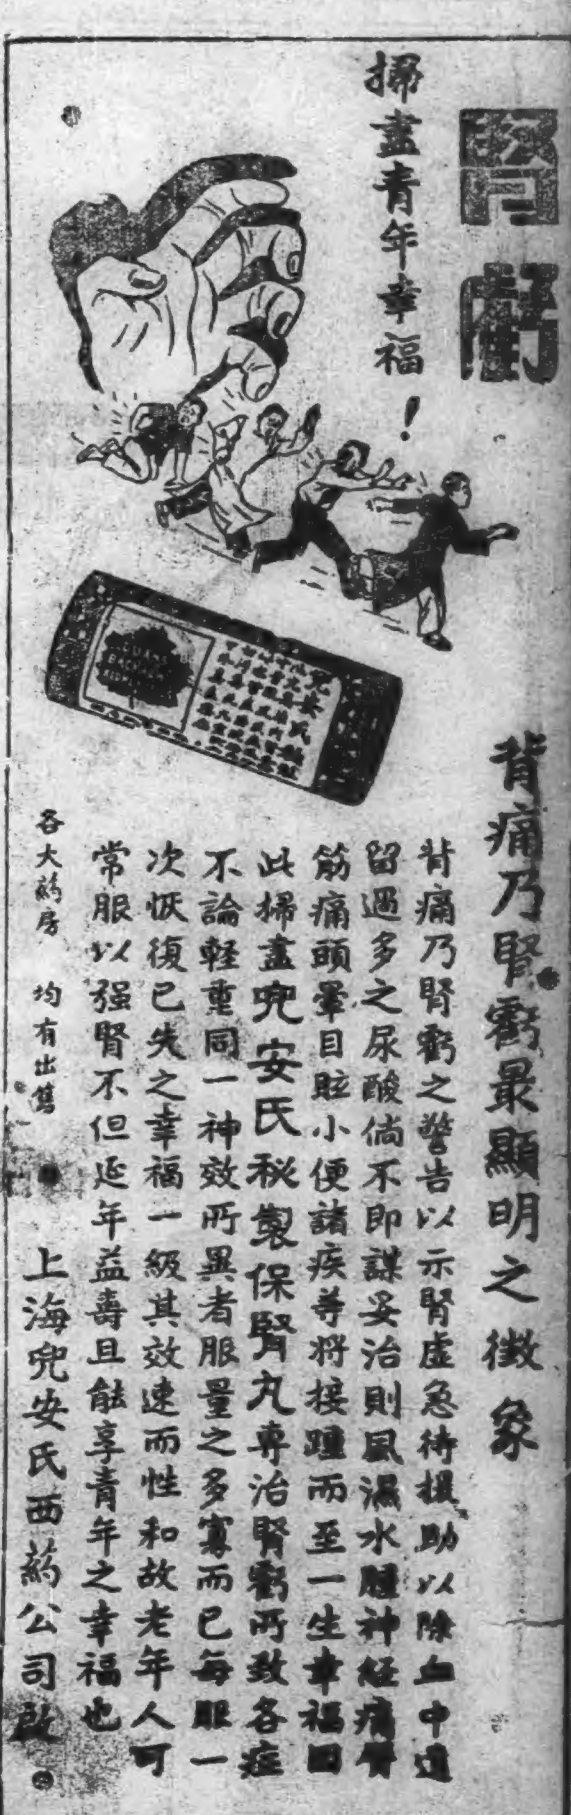 腎虧
掃盡青年幸福！
背痛乃腎虧最顯明之徵象
背痛乃腎虧之警告以示腎虛急待援助以除血中遺
留過多之尿酸倘不即謀妥治則風濕水腫神經痛骨
筋痛頭暈目眩小便諸疾等將接踵而至一生幸福因
此掃盡兜安氏秘製保腎丸專治腎虧所致各症
不論輕重同一神效所異者服量之多寡而已每服一
次恢復已失之幸福一級其效速而性和故老年人可
常服以强腎不但延年益壽且能享青年之幸福也
各大葯房 均有出售
上海兜安氏西葯公司啟
BACKACHE